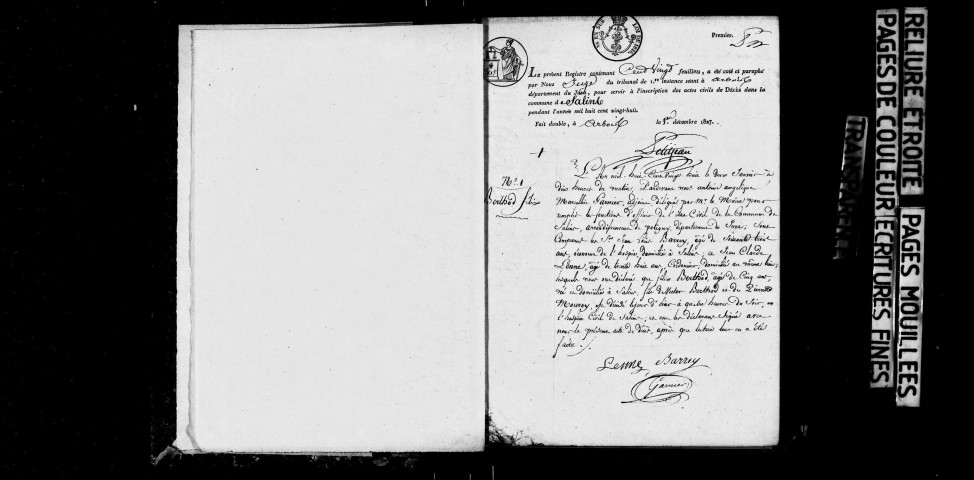 Premier.
LE présent Registre contenant Cent Vingt feuillets, a été coté et paraphé
par Nous Juge du tribunal de 1.re instance séant à arbois
département du Jura, pour servir à l'inscription des actes civils de Décès dans la
commune de Salins
pendant l'année mil huit cent vingt-huit.
Fait double, à arbois le 1er décembre 1827.
Petitjean
N.º 1
Berthod félix
L'an mil huit Cent vingt huit le deux Janvier à
dix heures du matin, Pardevant nous antoine angelique
Marcellin Garnier, adjoint délégué par Mr. le Maire pour
remplir les fonctions d'officier de l'état Civil de la Commune de
Salins, arrondissement de poligny, département du Jura; Sont
Comparus les Srs. Jean Barrey, âgé de Soixante huit
ans, de l'hospice, domicilié à Salins; et Jean Claude
Lenne, âgé de trente huit ans Cordonnier, domicilié au même lieu;
lesquels nous ont déclaré que félix Berthod, âgé de Cinq ans,
né et domicilié à Salins, fils de Berthod et de Pierrette
est décédé le jour d'hier à quatre heures du Soir, en
l'hospice Civil de Salins; et ont les déclarans Signé avec
nous le présent acte de décès, après que lecture leur en a été
faite.
Lenne Barrey
Garnier
RELIURE ETROITE
PAGES MOUILLEES
PAGES DE COULEUR
ECRITURES FINES
TRANSPARENTE